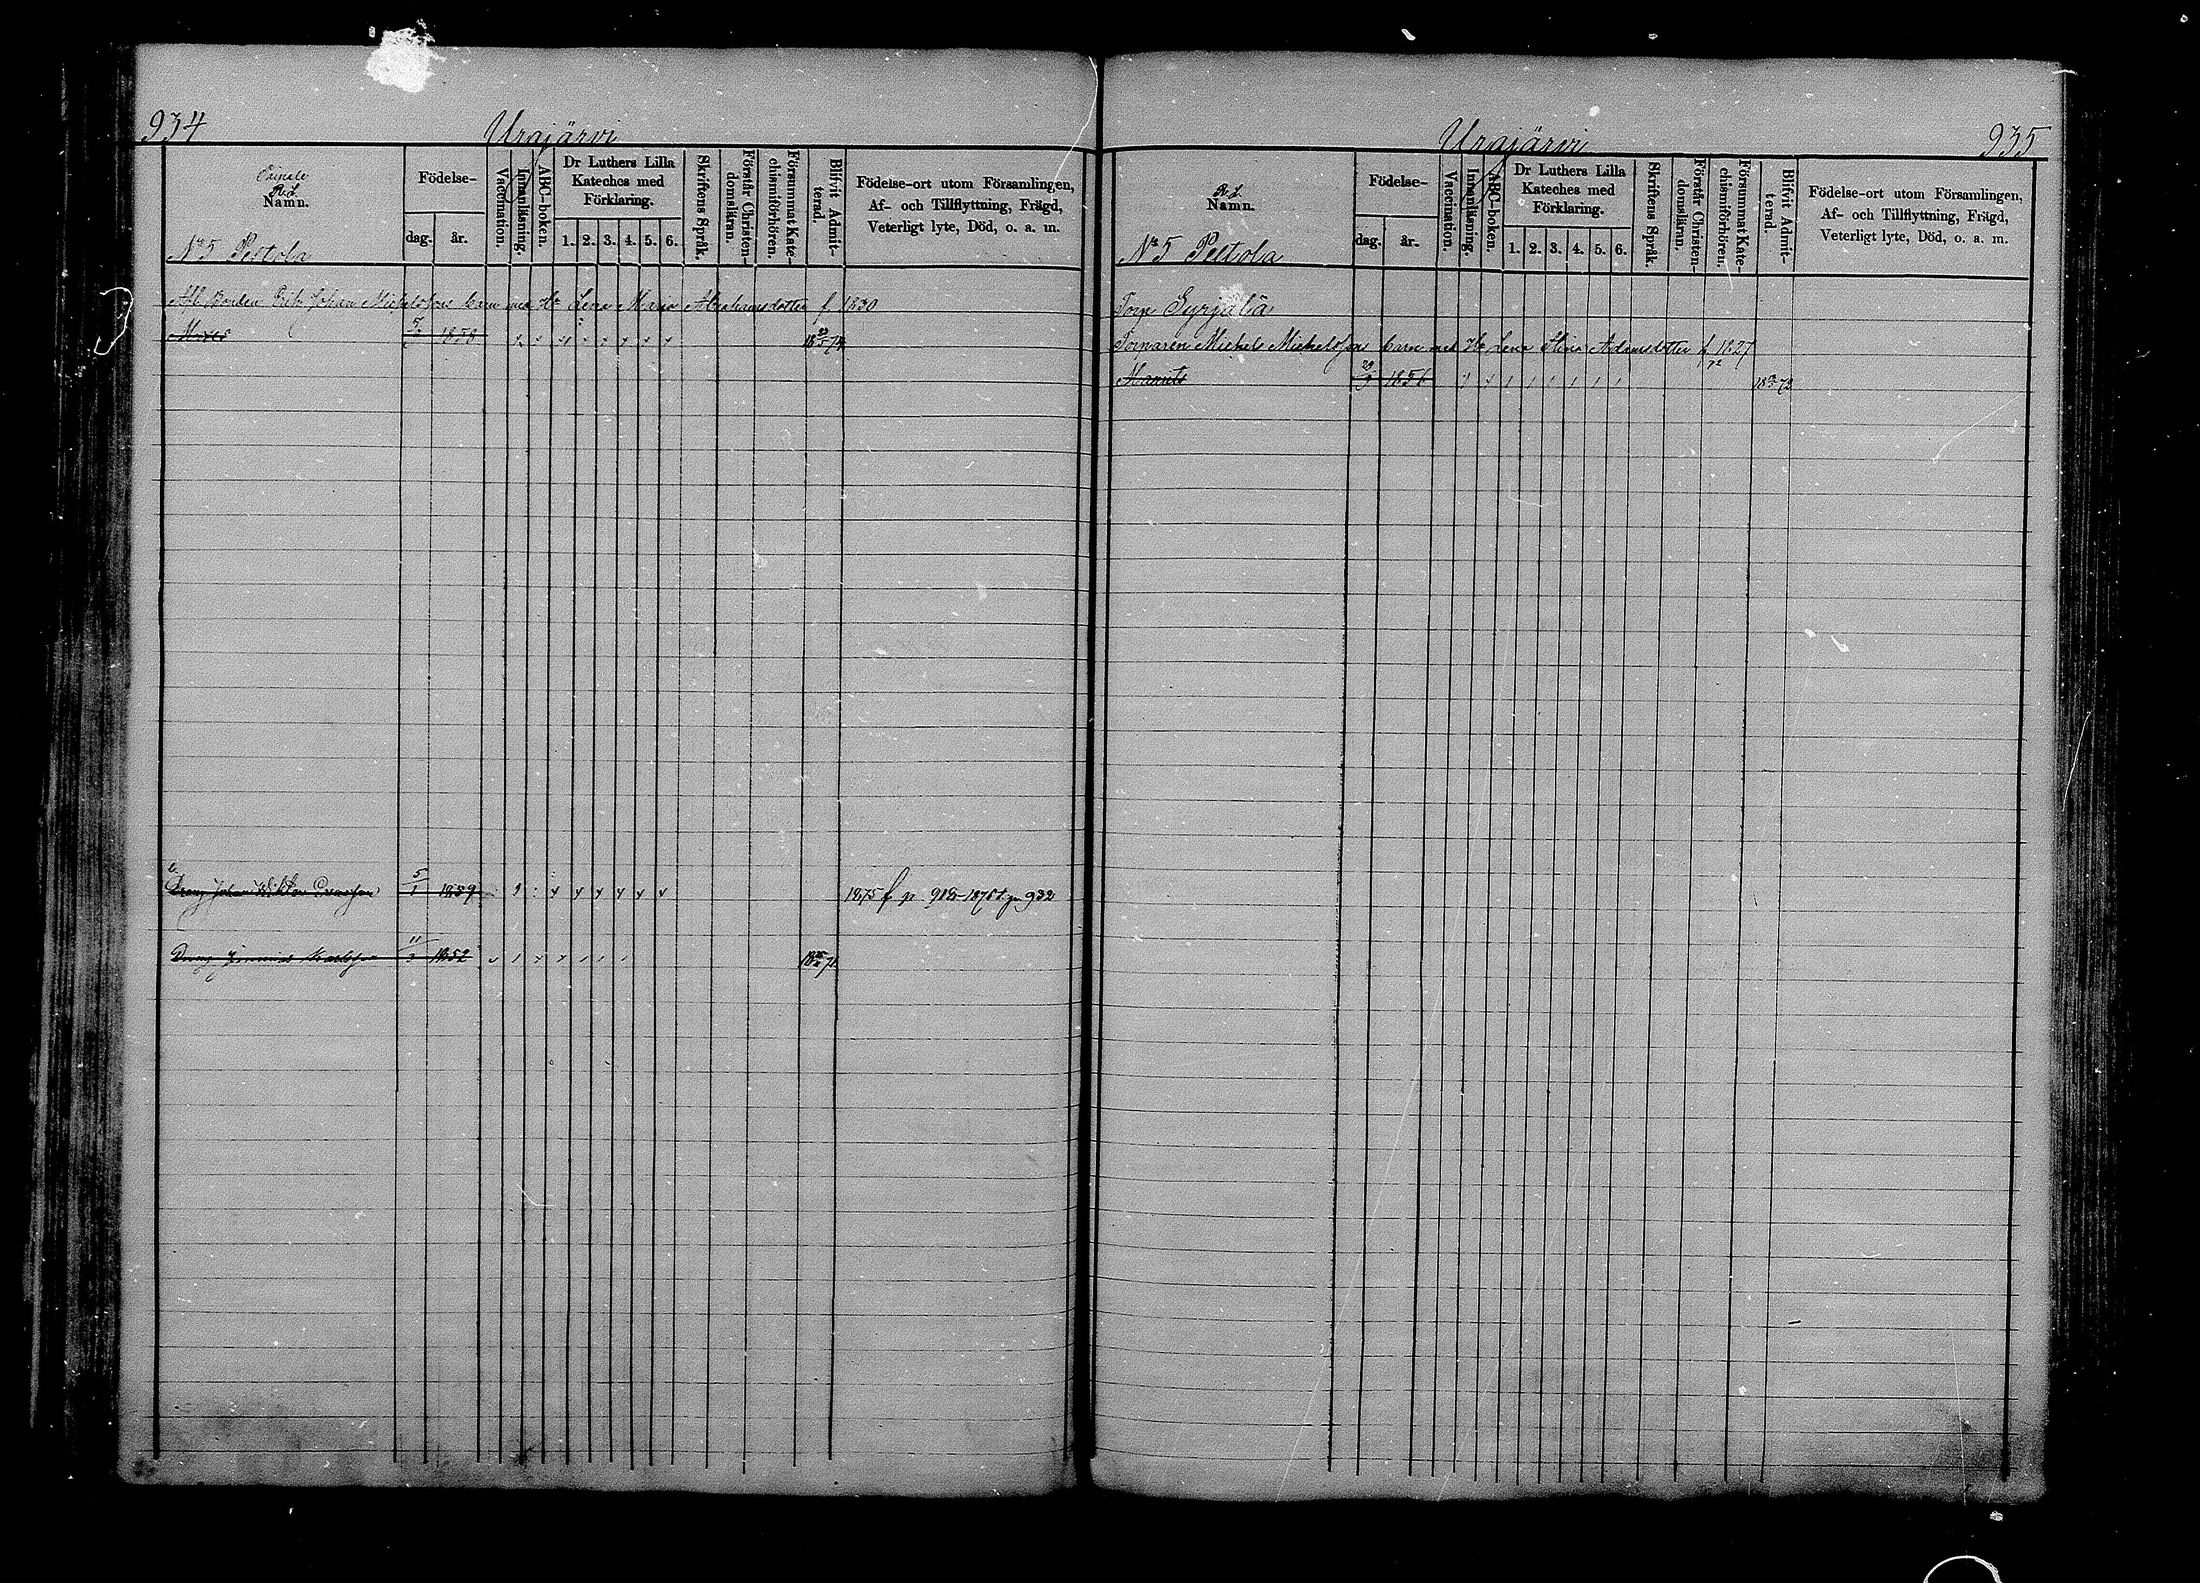 934
Urajärvi
Namn.
Födelse-
dag. år.
Vaccination.
Innanläsning.
ABC-boken.
Dr Luthers Lilla
Kateches med
Förklaring.
1. 2. 3. 4. 5. 6.
Skriftens Språk.
Förstår Christen-
domsläran.
Försummat Kate-
chismiförhören.
Blifvit Admit-
terad.
Födelse-ort utom Församlingen,
Af- och Tillflyttning, Frägd,
Veterligt lyte, Död, o. a. m.
No 5 Peltola
Afl. Bonden Erik Johan Michelssons barn med Ho Lena Maria Abrahamsdotter f. 1830
5 1858
Dreng Johan Wiktor 5/1 1859 1875 f p 918 1876 t. p. 932
Dreng Karlsson 11/3 1852
935
Urajärvi
Namn.
Födelse-
dag. år.
Vaccination.
Innanläsning.
ABC-boken.
Dr Luthers Lilla
Kateches med
Förklaring.
1. 2. 3. 4. 5. 6.
Skriftens Språk.
Förstår Christen-
domsläran.
Försummat Kate-
chismiförhören.
Blifvit Admit-
terad.
Födelse-ort utom Församlingen,
Af- och Tillflyttning, Frägd,
Veterligt lyte, Död, o. a. m.
No 5 Peltola
Torp Syrjälä
Torparen Michel Michelssons barn med Ho Lena Stina Adamsdotter f. 1827
Manuts 1856